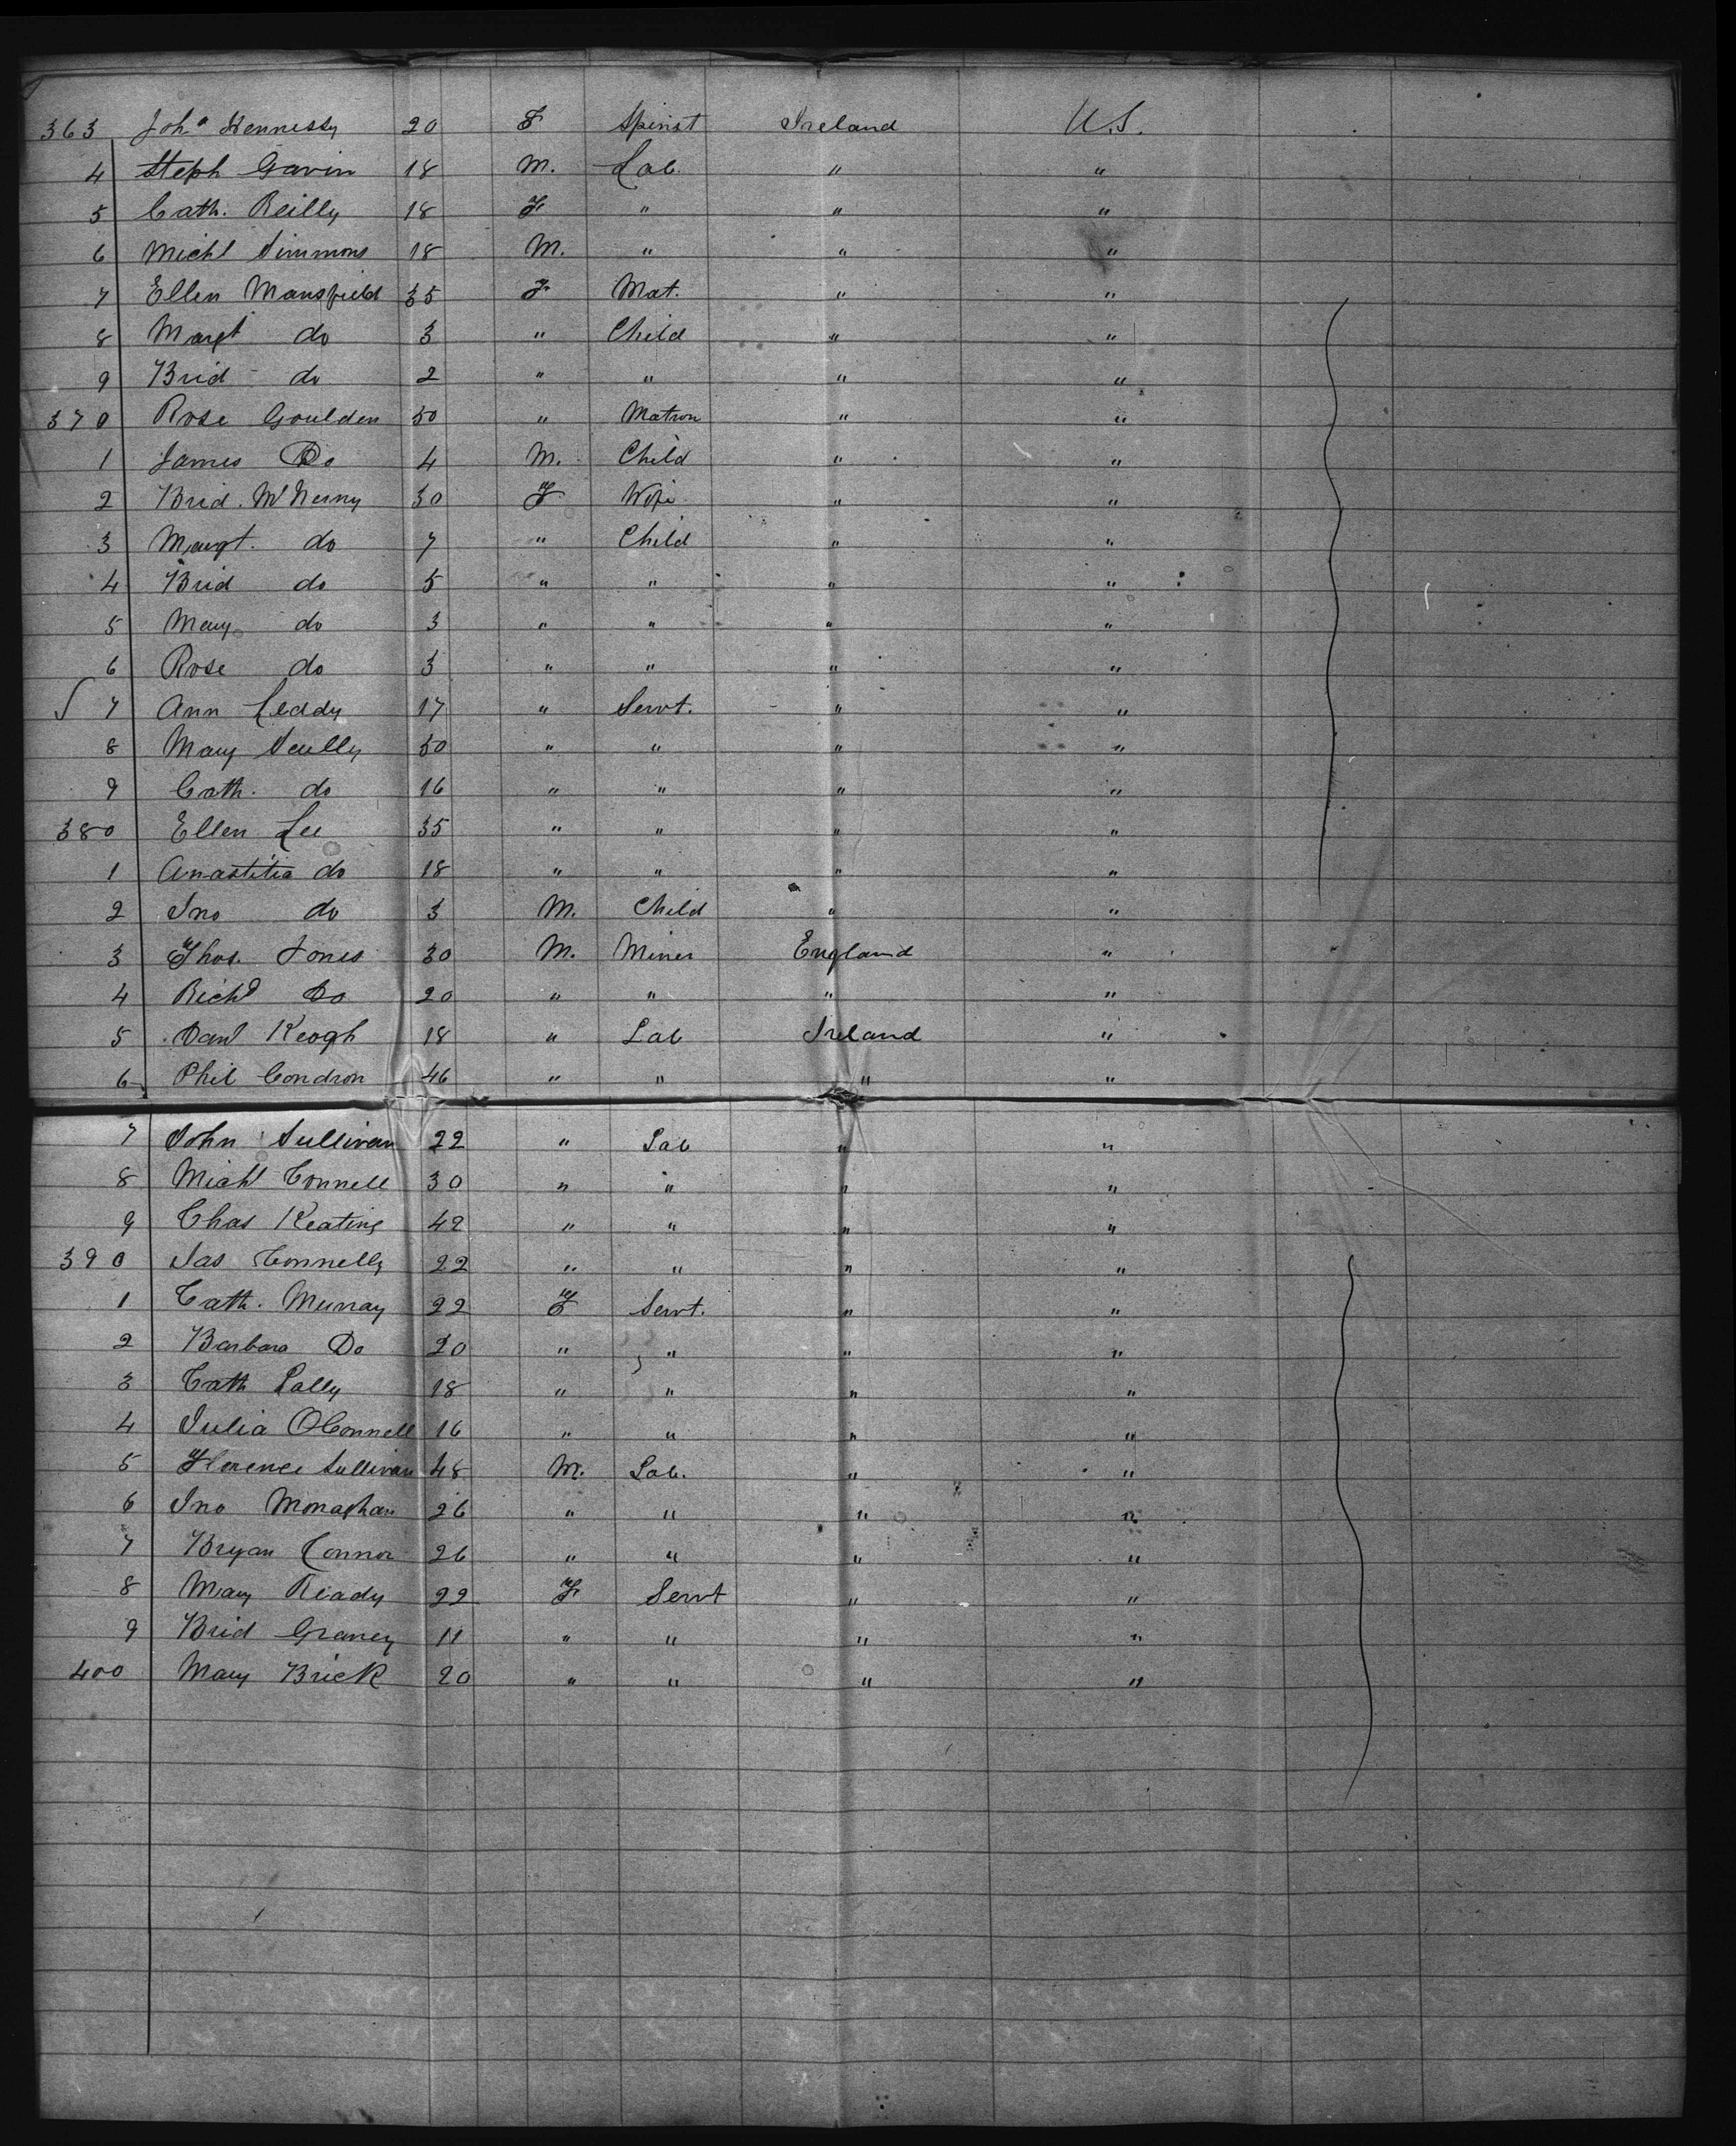 363 Joh<sup>a</sup> Hennessy 20 F Spinst Ireland U.S.
4 Steph Gavin 18 M. Lab. " "
5 Cath. Reilly 18 F " " "
6 Michl Simmons 18 M. " " "
7 Ellen Mansfield 35 F Mat. " "
8 Margt do 3 " Child " "
9 Brid do 2 " " " "
370 Rose Goulden 50 " Matron " "
1 James Do 4 M. Child " "
2 Brid. McNerny 30 F Wife " "
3 Margt. do 7 " Child " "
4 Brid do 5 " " " "
5 Mary do 3 " " " "
6 Rose do 3 " " " "
7 Ann Leddy 17 " Servt. " "
8 Mary Scully 50 " " " "
9 Cath. do 16 " " " "
380 Ellen Lee 35 " " " "
1 Anastitia do 18 " " " "
2 Jno do 3 M. Child " "
3 Thos. Jones 30 M. Miner England "
4 Richd Do 20 " " " "
5 Danl Keogh 18 " Lab Ireland "
6 Phil Condron 46 " " " "
7 John Sullivan 22 " Lab " "
8 Michl Connell 30 " " " "
9 Chas Keating 42 " " " "
390 Jas Connelly 22 " " " "
1 Cath. Murray 22 F Servt. " "
2 Barbara Do 20 " " " "
3 Cath Lally 18 " " " "
4 Julia OConnell 16 " " " "
5 Florence Sullivan 48 M. Lab. " "
6 Jno Monaghan 26 " " " "
7 Bryan Connor 26 " " " "
8 Mary Ready 22 F Servt " "
9 Brid Graney 11 " " " "
400 Mary Brick 20 " " " "